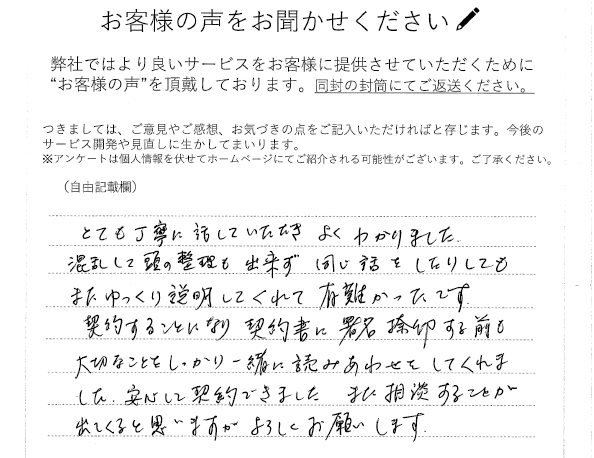 お客様の声をお聞かせください
弊社ではより良いサービスをお客様に提供させていただくために
“お客様の声”を頂戴しております。同封の封筒にてご返送ください。
つきましては、ご意見やご感想、お気づきの点をご記入いただければと存じます。今後の
サービス開発や見直しに生かしてまいります。
※アンケートは個人情報を伏せてホームページにてご紹介される可能性がございます。ご了承ください。
（自由記載欄）
とても丁寧に話していただき よく わかりました。
混乱して頭の整理も出来ず 同じ話をしたりしても
またゆっくり説明してくれて 有難かったです。
契約することになり 契約書に署名捺印する前も
大切なことをしっかり一緒に読みあわせをしてくれま
した。安心して契約できました また相談することが
出てくると思いますが よろしくお願いします。